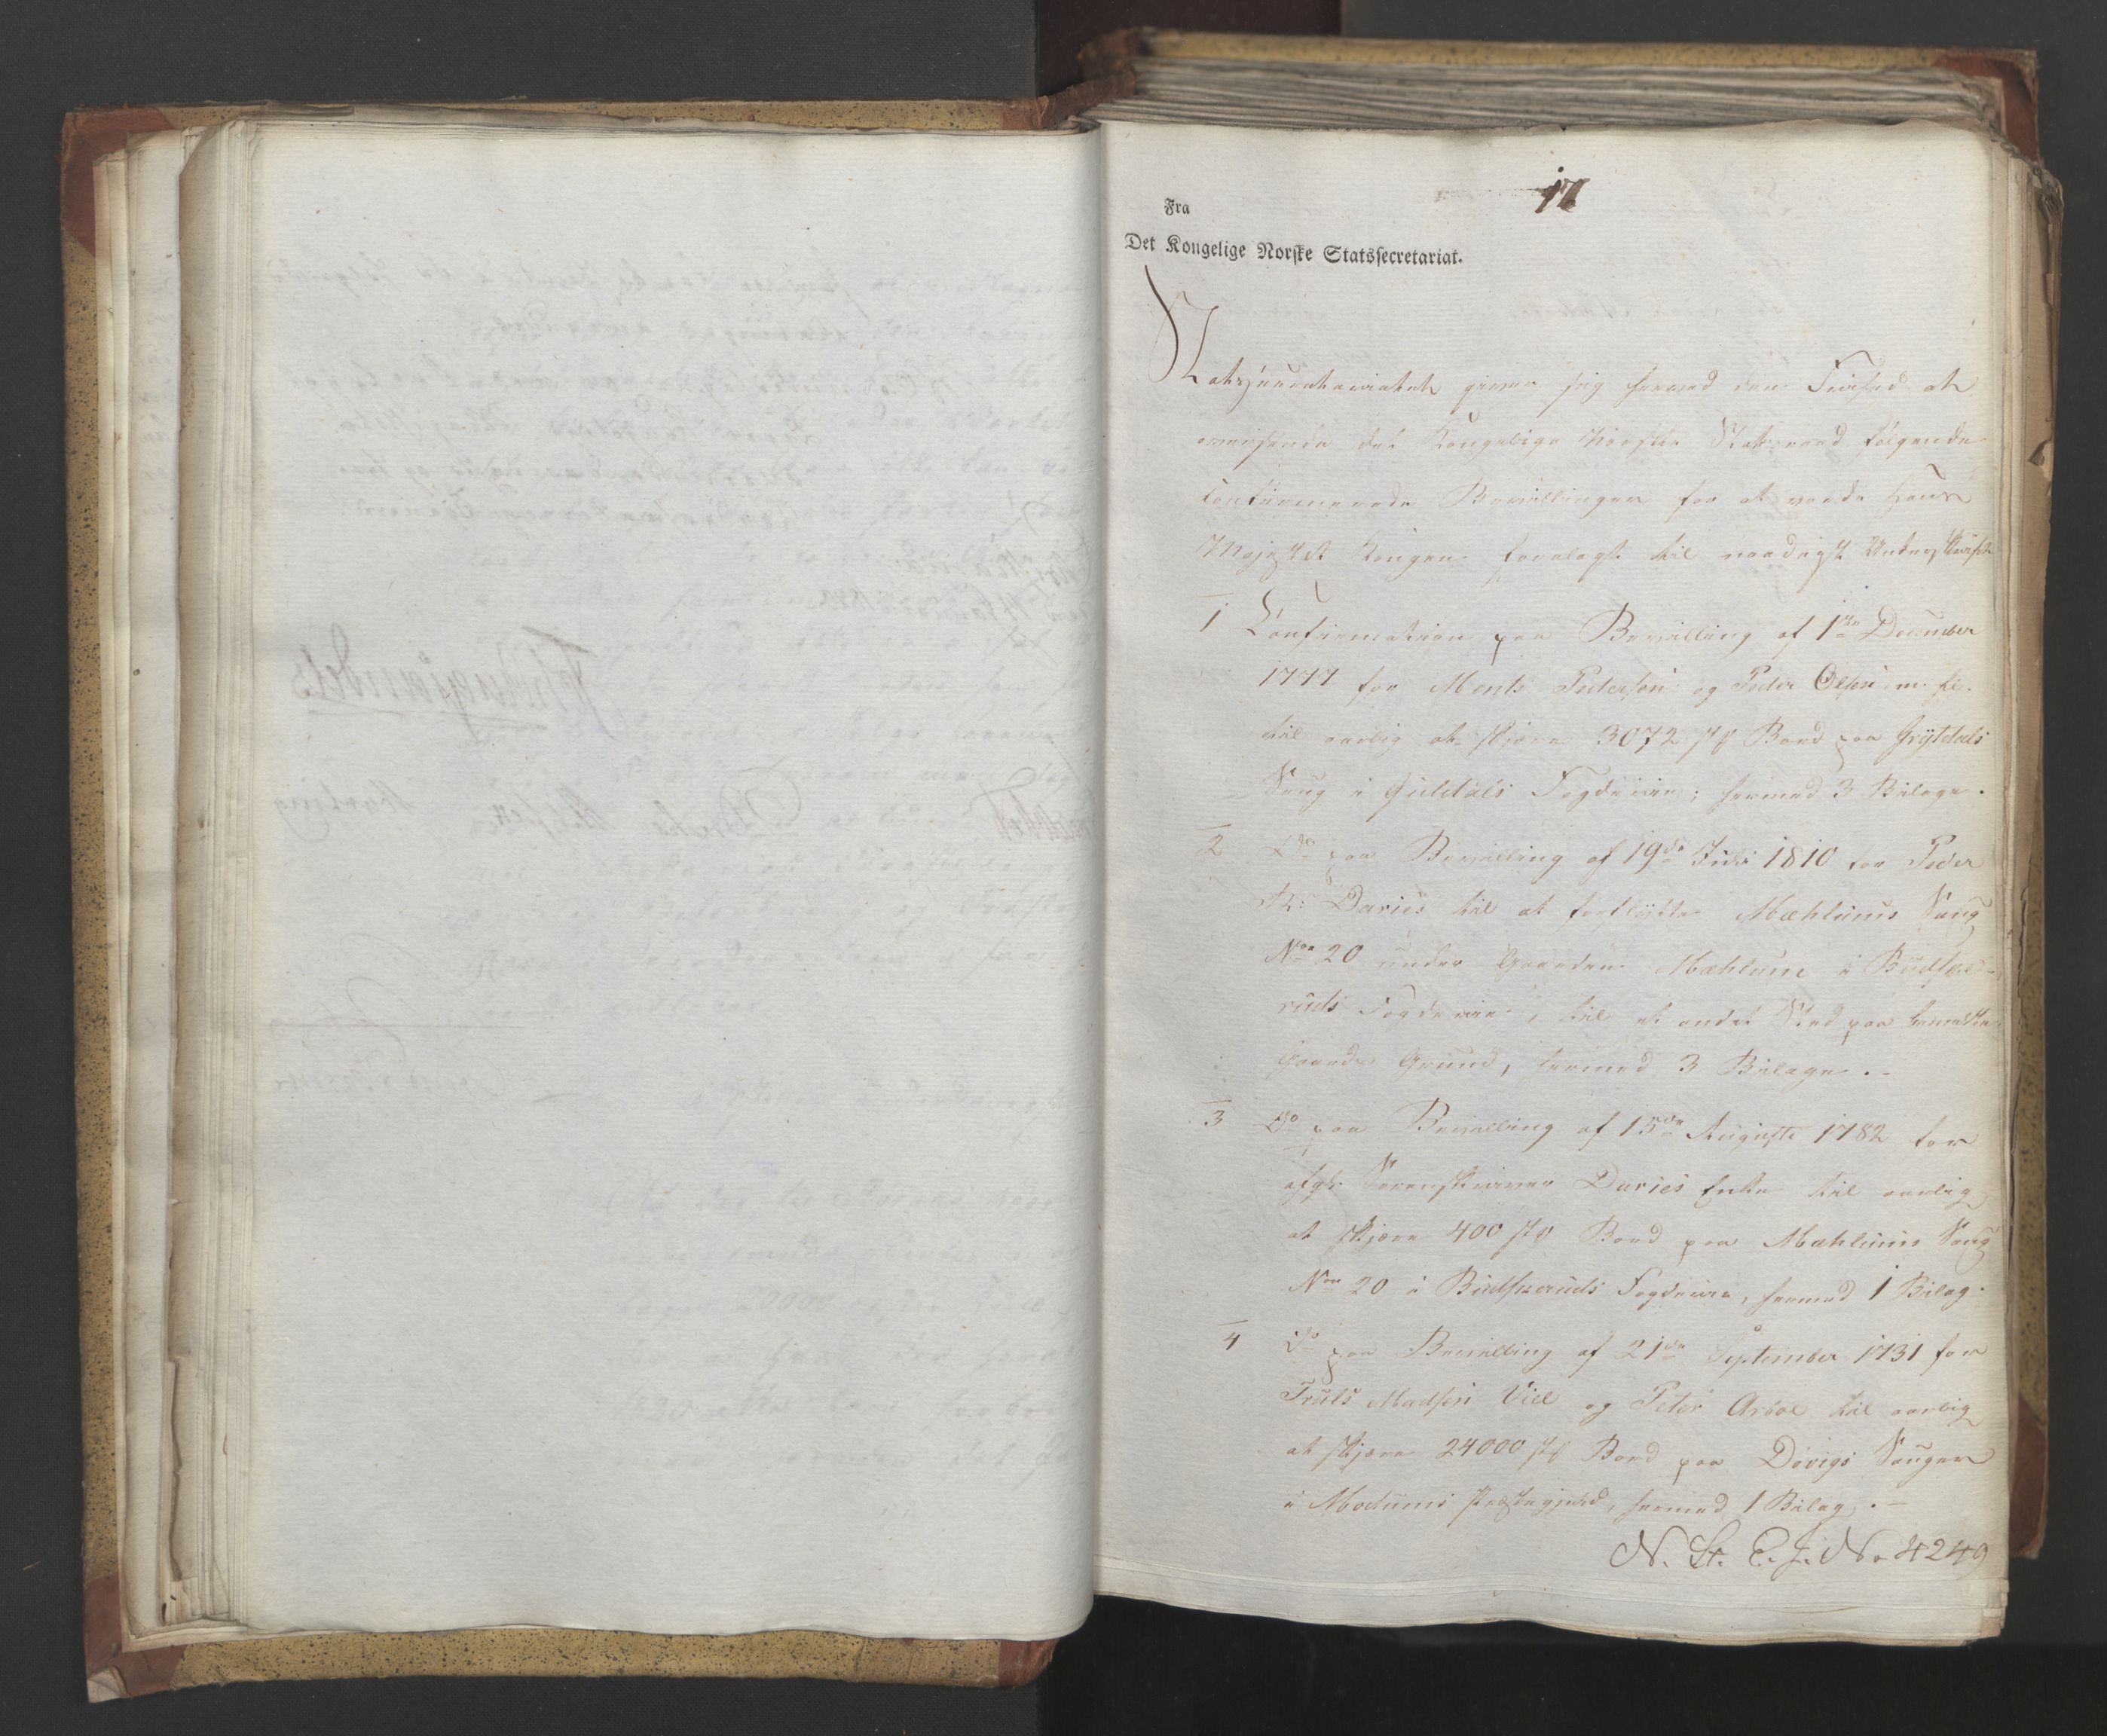 17
Fra
Det Kongelige Norske Statssecretariat.
Statssecretariatet giver sig herved den Frihed at
oversende det Kongelige Norske Statsraad følgende
Confirmerede Bevillinger for at vorde Hans
Majestæt Kongen forelagt til naadigst Underskrift
1 Confirmation paa Bevilling af 1ste December
1777 for Ments Pedersen og Peder Olsen m. fl.
til aarlig at skjære 3072 stk Bord paa Grytdals
Saug i Guldals Fogderie; hermed 3 Bilage.
2 Do paa Bevilling af 19de Juli 1810 for Peder
Daries til at forflytte Mæhlums Saug
No 20 under Gaarden Mæhlum i Budske-
ruds Fogderie, til et andet Sted paa bemeldte
Gaards Grund, hermed 3 Bilage.
3 Do paa Bevilling af 15de Augusti 1782 for
afgl. Sorenskriver Daries Enke til aarlig
at skjære 400 stk Bord paa Mæhlums Saug
No 20 i Budskeruds Fogderie, hermed 1 Bilag.
4 Do paa Bevilling af 21de September 1731 for
Truls Madsen Viel og Peter Arboe til aarlig
at skjære 24000 stk Bord paa Døvigs Sauger
i Modums Præstegjeld, hermed 1 Bilag.
N. St. C. J. No 4249